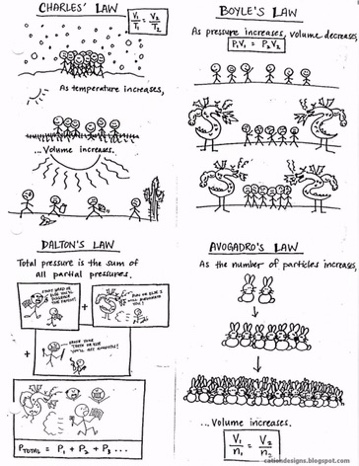 CHARLES' LAW
V₁/T₁ = V₂/T₂
As temperature increases,
...Volume increases.
BOYLE'S LAW
As pressure increases, volume decreases
P₁V₁ = P₂V₂
DALTON'S LAW
Total pressure is the sum
of all partial pressures.
+
+
P_TOTAL = P₁ + P₂ + P₃ ...
AVOGADRO'S LAW
As the number of particles increases,
...Volume increases.
V₁/n₁ = V₂/n₂
cationdesigns.blogspot.com